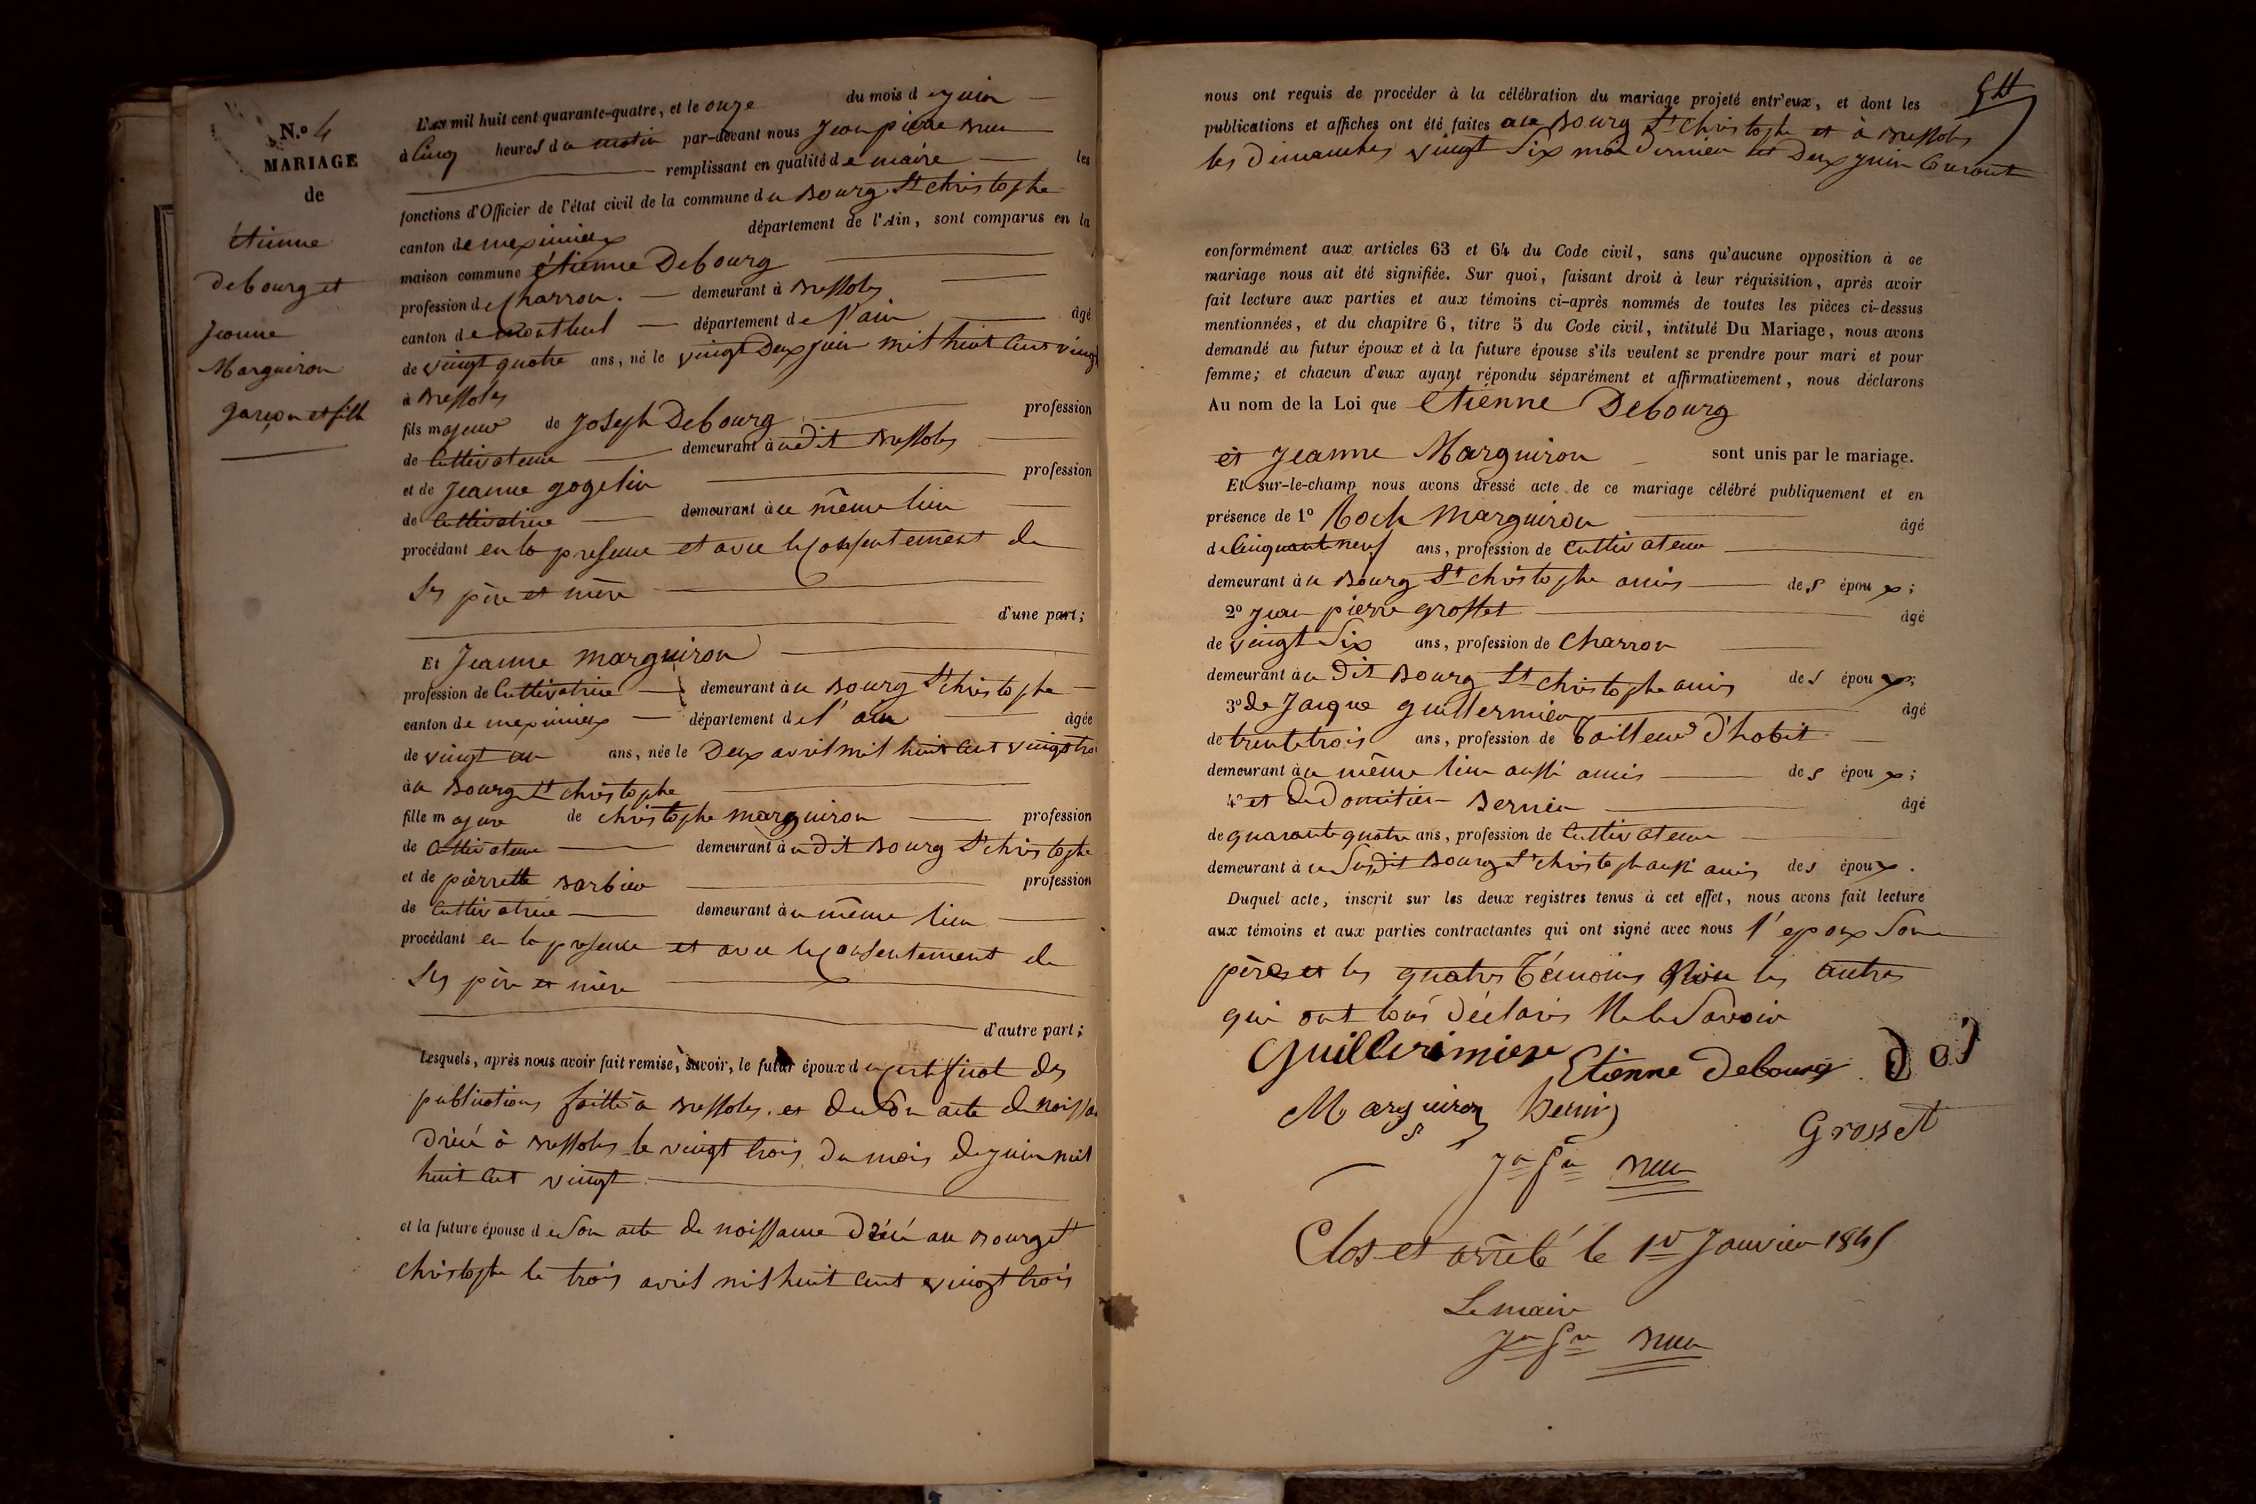 N.o 4
MARIAGE
de
étienne
debourg et
jeanne
Marguiron
garçon et fille
L'an mil huit cent quarante-quatre, et le onze du mois de juin
à cinq heures du matin par-devant nous jean pierre
remplissant en qualité de maire les
fonctions d'Officier de l'état civil de la commune du Bourg St christophe
canton de meximieux département de l'Ain, sont comparus en la
maison commune étienne Debourg
profession de charron. demeurant à Bressoles
canton de montluel département de l'ain âgé
de vingt quatre ans, né le vingt Deux juin mil huit cent vingt
à Bressoles
fils majeur de joseph Debourg profession
de cultivateur demeurant à udit Bressoles
et de jeanne gogelin profession
de cultivatrice demeurant à u même lieu
procédant en la presence et avec le consentement de
ses père et mère
d'une part;
Et jeanne marguiron
profession de cultivatrice demeurant à u Bourg St christophe
canton de meximieux département de l'ain âgée
de vingt un ans, née le Deux avril mil huit cent vingt trois
à u Bourg St christophe
fille majure de christophe marguiron profession
de cultivateur demeurant à udit Bourg St christophe
et de pierrette Barbier profession
de cultivatrice demeurant à u même lieu
procédant en la presence et avec le consentement de
ses père et mère
d'autre part;
Lesquels, après nous avoir fait remise, savoir, le futur époux du certificat des
publications faitte à Bressoles. et de son acte de naissa
Dréssé à Bressoles le vingt trois du mois de juin mil
huit cent vingt
et la future épouse de son acte de naissance Dréssé au Bourg St
christophe le trois avril mil huit cent vingt trois
nous ont requis de procéder à la célébration du mariage projeté entr'eux, et dont les
publications et affiches ont été faites au Bourg St christophe et à Bressoles
les dimanches vingt six mai dernier et Deux juin courant
conformément aux articles 63 et 64 du Code civil, sans qu'aucune opposition à ce
mariage nous ait été signifiée. Sur quoi, faisant droit à leur réquisition, après avoir
fait lecture aux parties et aux témoins ci-après nommés de toutes les pièces ci-dessus
mentionnées, et du chapitre 6, titre 5 du Code civil, intitulé Du Mariage, nous avons
demandé au futur époux et à la future épouse s'ils veulent se prendre pour mari et pour
femme; et chacun d'eux ayant répondu séparément et affirmativement, nous déclarons
Au nom de la Loi que étienne Debourg
et jeanne Marguiron sont unis par le mariage.
Et sur-le-champ nous avons dressé acte de ce mariage célébré publiquement et en
présence de 1o Roch marguiron âgé
de cinquante neuf ans, profession de cultivateur
demeurant à u Bourg St christophe amis des époux;
2o jean pierre grosset âgé
de vingt six ans, profession de charron
demeurant à u dit Bourg St christophe amis des époux;
3o de jaique guillermier âgé
de trente trois ans, profession de tailleur d'habit
demeurant à u même lieu aussi amis des époux;
4o et de Domitien Bernin âgé
de quarante quatre ans, profession de cultivateur
demeurant à u susdit Bourg St christophe aussi amis des époux.
Duquel acte, inscrit sur les deux registres tenus à cet effet, nous avons fait lecture
aux témoins et aux parties contractantes qui ont signé avec nous l'epoux son
père et les quatre témoins non les autres
qui ont tous déclarés ne le savoir
guillerimier Etienne Debourg
Marguiron Bernin
Grosset
Clos et arrêté le 1er janvier 1845
Le maire